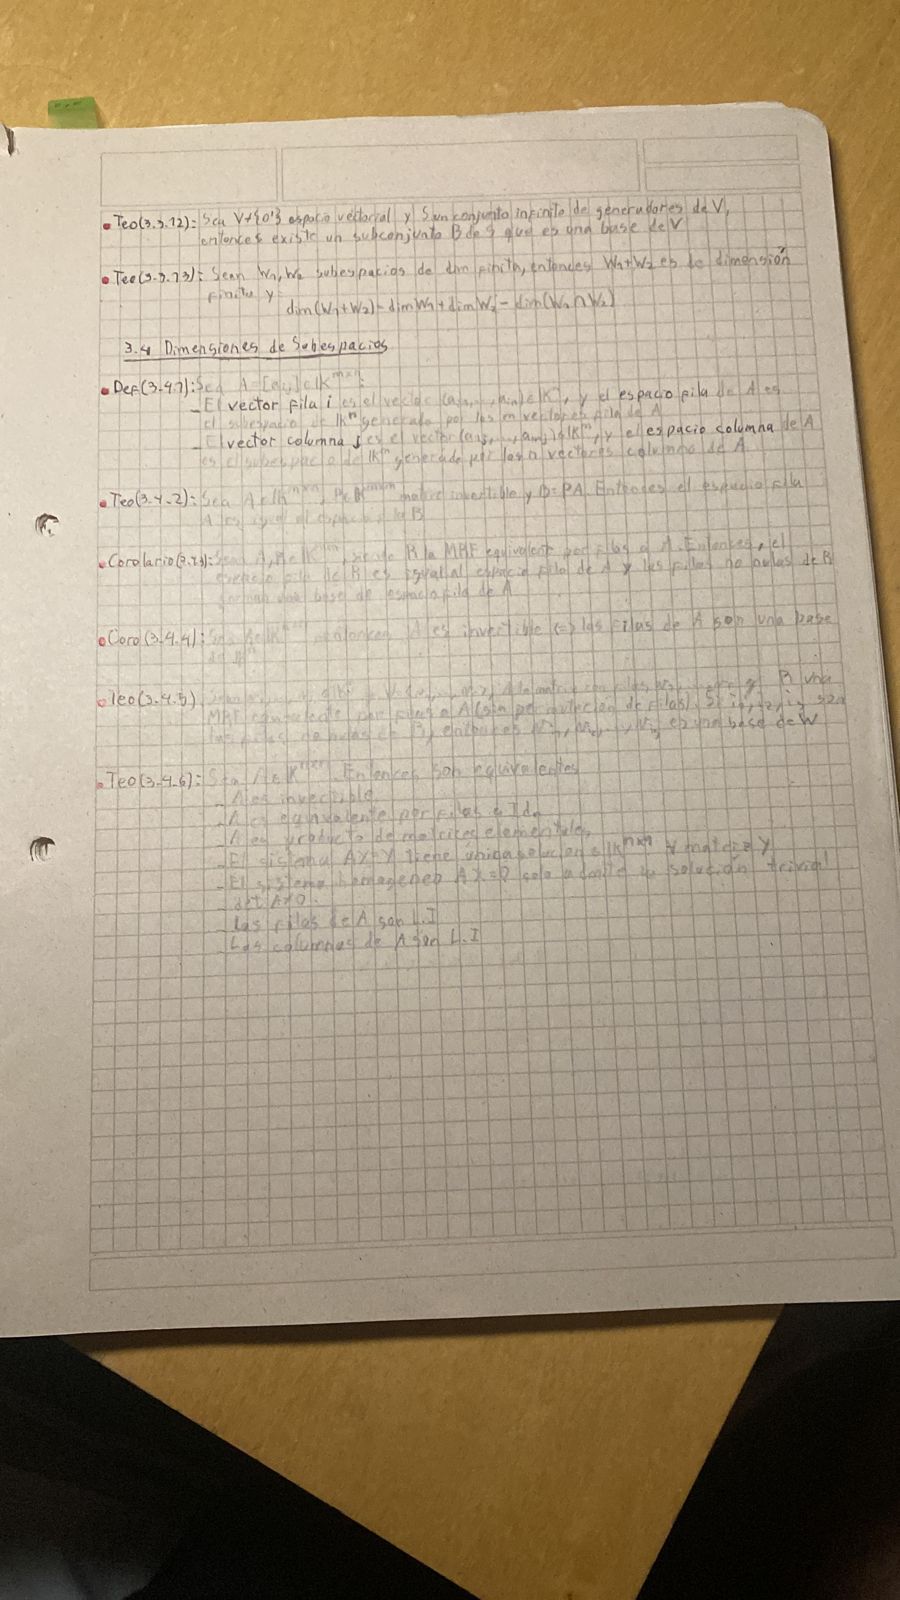 • Teo(3.3.12): Sea V≠{0} espacio vectorial y S un conjunto infinito de generadores de V,
entonces existe un subconjunto B de S que es una base de V
• Teo(3.3.13): Sean W₁, W₂ subespacios de dim finita, entonces W₁+W₂ es de dimensión
finita y
dim(W₁+W₂)=dimW₁+dimW₂-dim(W₁∩W₂)
3.4 Dimensiones de Subespacios
• Def(3.4.1): Sea A=[aᵢⱼ]∈𝕂ᵐˣⁿ:
- El vector fila i es el vector ∈𝕂ⁿ, y el espacio fila de A es
el subespacio de 𝕂ⁿ generado por los m vectores fila de A
- El vector columna j es el vector ∈𝕂ᵐ, y el espacio columna de A
es el subespacio de 𝕂ᵐ generado por los n vectores columna de A
• Teo(3.4.2): Sea A∈ matriz invertible y B=PA. Entonces el espacio fila
A es igual al espacio fila B
• Corolario: R la MRF equivalente por filas a A. Entonces, el
espacio fila de R es igual al espacio fila de A y las filas no nulas de R
forman una base de espacio fila de A
• Coro(3.4.4): entonces A es invertible ⟺ las filas de A son una base
de
• Teo(3.4.5) A la matriz con filas R una
MRF equivalente por filas a A (sin permutación de filas). Si son
las filas no nulas de R, entonces es una base de W
• Teo(3.4.6): Sea A∈𝕂ⁿˣⁿ. Entonces son equivalentes
- A es invertible
- A es equivalente por filas a Idₙ
- A es producto de matrices elementales
- El sistema AX=Y tiene única solución ∀ matriz Y
- El sistema homogéneo AX=0 solo admite la solución trivial
- det A≠0.
- Las filas de A son L.I
- Las columnas de A son L.I